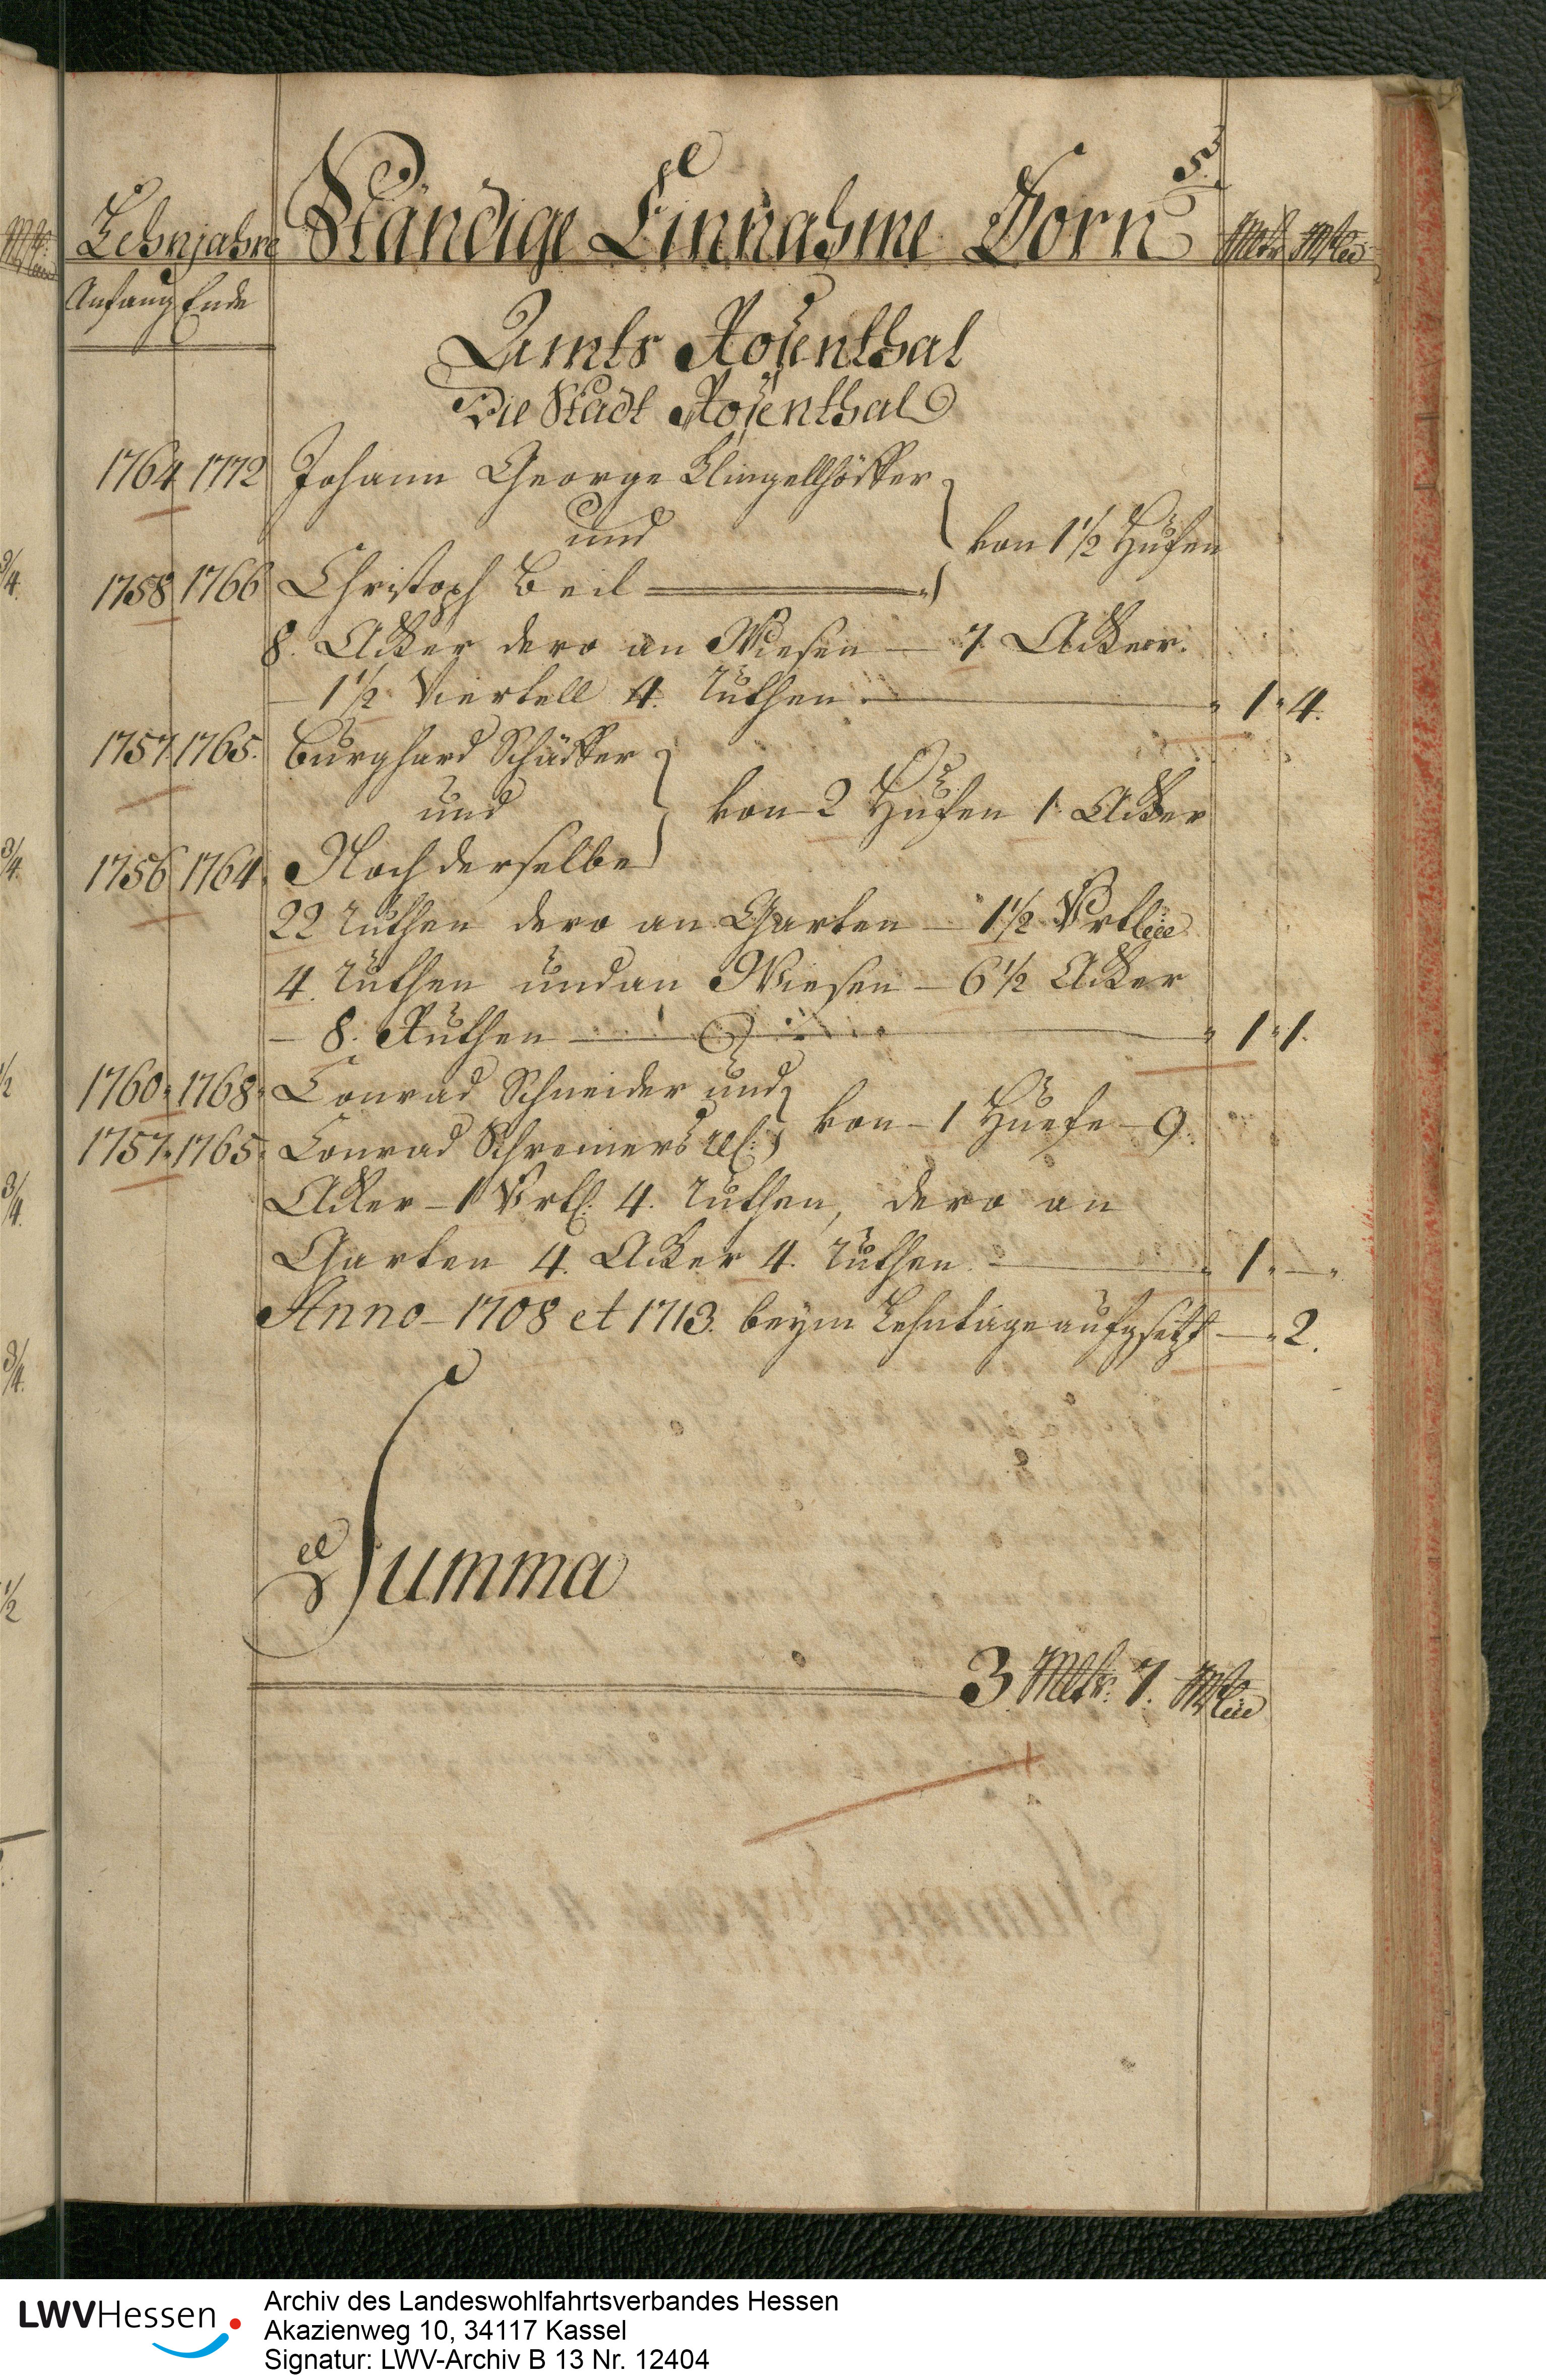 5.
Lehnjahre Ständige Einnahme Korn Mltr Mtzen
Anfang Ende
Amts Rosenthal
Die Stadt Rosenthal
1764 1772 Johann George Klingellhöffer
und
von 1 1/2 Hufen
1758 1766 Christoph Beil
8. Acker dero an Wiesen — 7. Acker.
— 1 1/2 Viertell 4. ruthen. — 1 " 4.
1757 1765. Burghard Schäffer
und von 2 Hufen 1. Acker
1756 1764. Noch derselbe
22 ruthen dero an Garten — 1 1/2 Vrtl
4. ruthen und an Wiesen — 6 1/2 Acker
— 8. Ruthen — 1 " 1.
1760. 1768. Conrad Schneider und
von — 1 Huefe — 9.
1757. 1765. Conrad Schreiners rel:
Acker — 1 Vrtl: 4. ruthen, dero an
Garten 4. Acker 4. ruthen. — 1 " — "
Anno — 1708 et 1713. beym Lehntage aufgesetzt — " 2.
Summa
3 Mltr: 7. Mtzen
LWVHessen
Archiv des Landeswohlfahrtsverbandes Hessen
Akazienweg 10, 34117 Kassel
Signatur: LWV-Archiv B 13 Nr. 12404